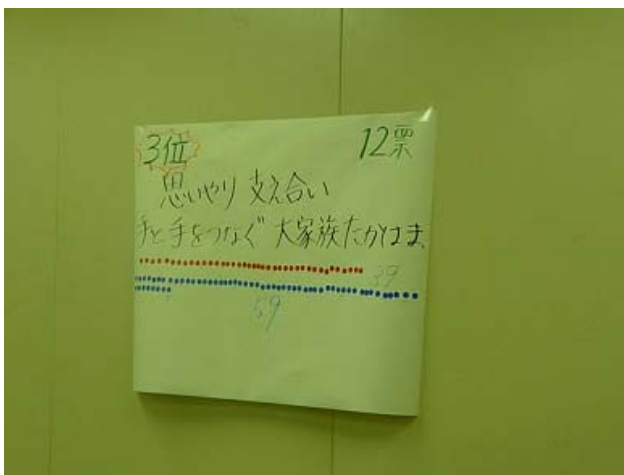 3位 12票
思いやり 支え合い
手と手をつなぐ 大家族たかはま
39
59